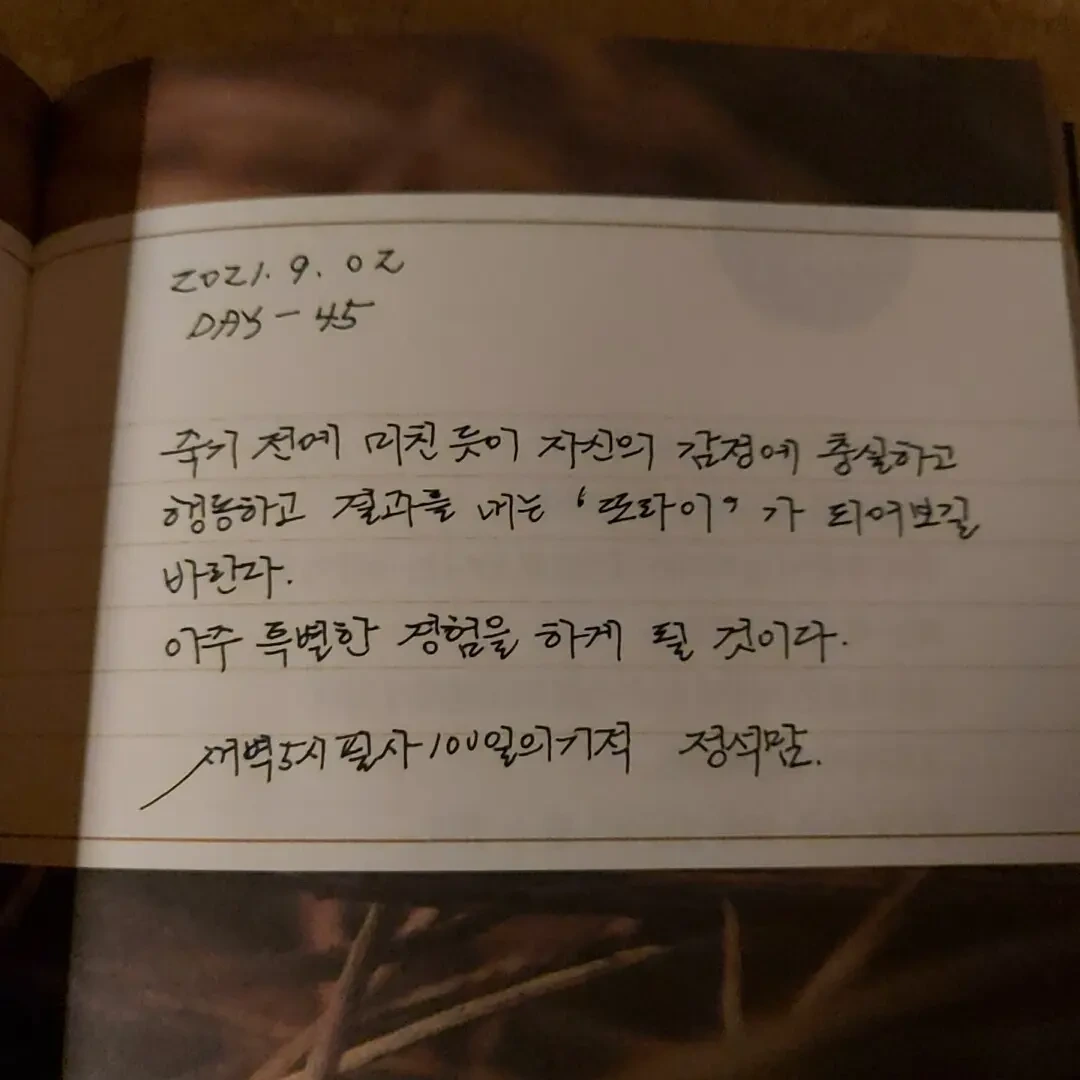 2021. 9. 02
DAY - 45
죽기 전에 미친 듯이 자신의 감정에 충실하고
행동하고 결과를 내는 '또라이' 가 되어보길
바란다.
아주 특별한 경험을 하게 될 것이다.
새벽5시 필사 100일의 기적 정석맘.